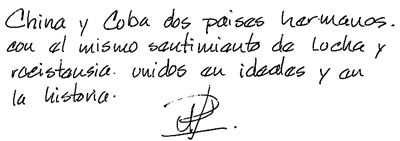 China y Coba dos paises hermanos.
con el mismo sentimiento de Lucha y
recistensia. unidos en ideales y en
la historia.